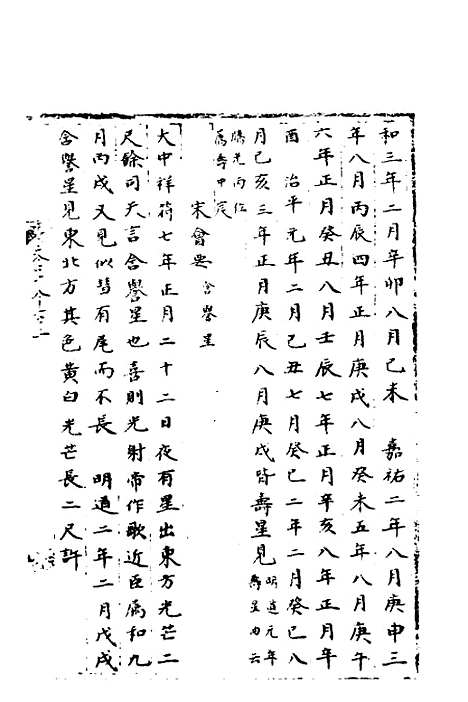 和三年二月辛卯八月己未　嘉祐二年八月庚申三
年八月丙辰四年正月庚戌八月癸未五年八月庚午
六年正月癸丑八月壬辰七年正月辛亥八年正月辛
酉　治平元年二月己丑七月癸巳二年二月癸巳八
月己亥三年正月庚辰八月庚戌皆壽星見明道元年
壽星內云
光丙位
為壽中
宋會要　含譽星
大中祥符七年正月二十二日夜有星出東方光芒二
尺餘司天言含譽星也喜則光射帝作歌近臣屬和九
月丙戌又見似彗有尾而不長　明道二年二月戊戌
含譽星見東北方其色黃白光芒長二尺許